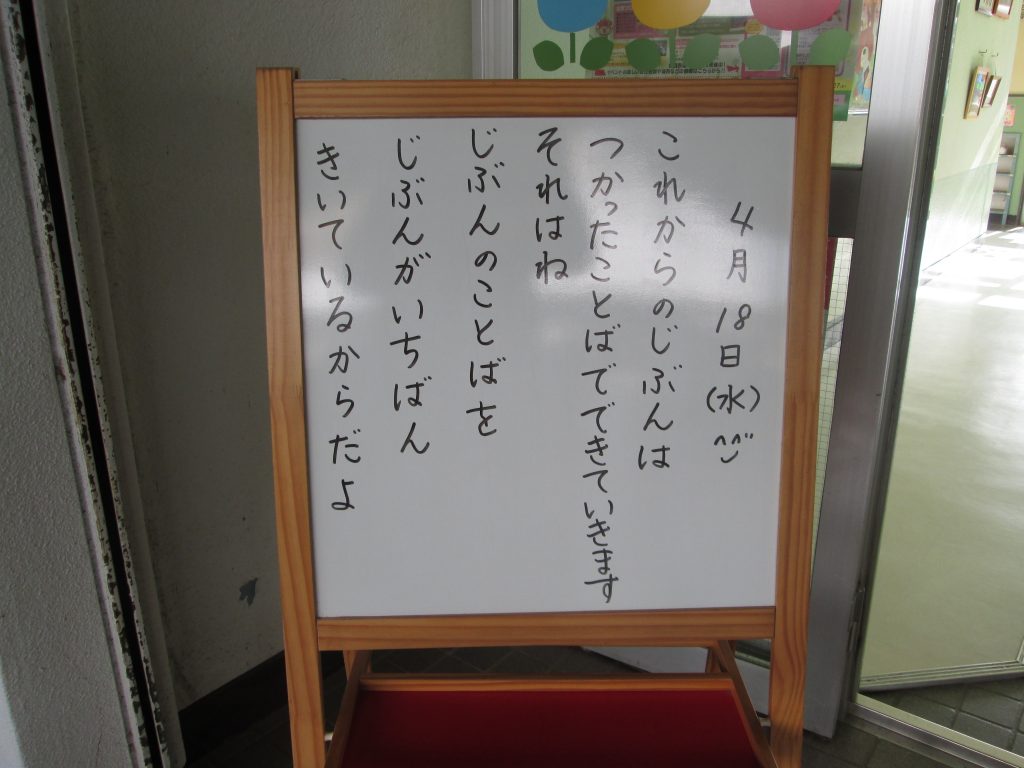 4月18日(水)
これからのじぶんは
つかったことばでできていきます
それはね
じぶんのことばを
じぶんがいちばん
きいているからだよ